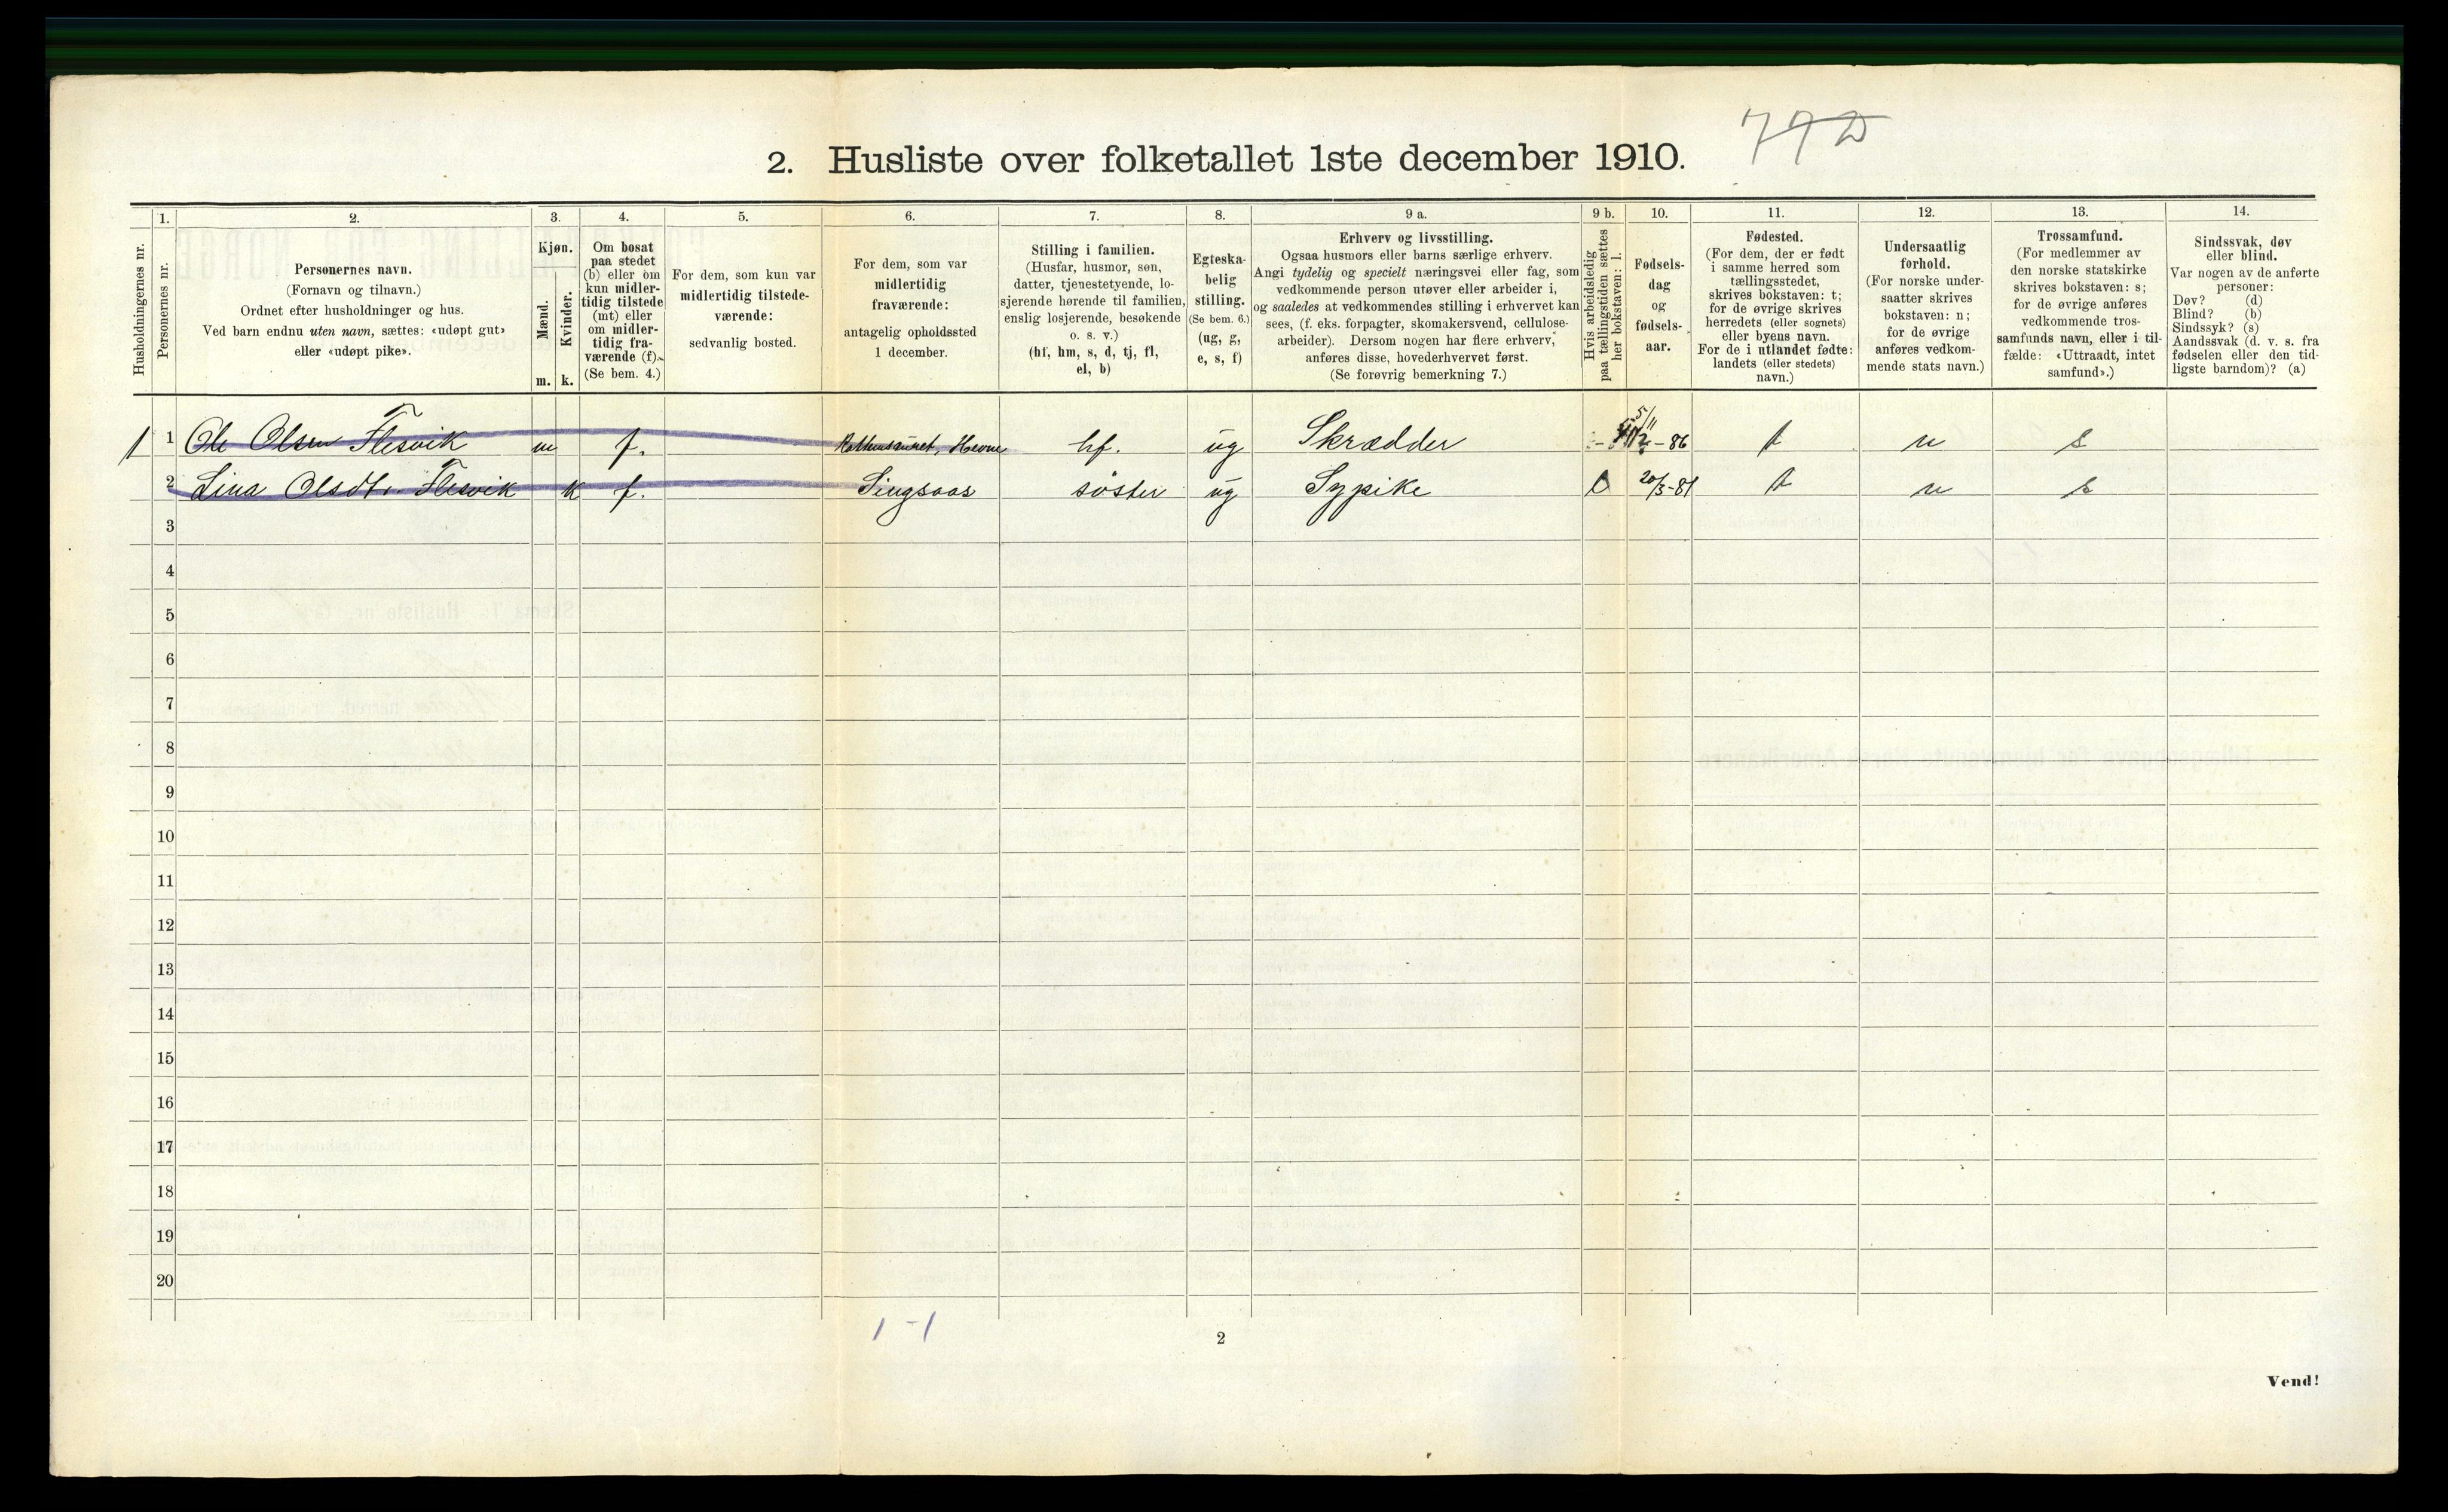 79 D
2. Husliste over folketallet 1ste december 1910.
Husholdningernes nr.
1.
Personernes nr.
2.
Personernes navn.
(Fornavn og tilnavn.)
Ordnet efter husholdninger og hus.
Ved barn endnu uten navn, sættes: «udøpt gut»
eller «udøpt pike».
3.
Kjøn.
Mænd.
Kvinder.
m. k.
4.
Om bosat
paa stedet
(b) eller om
kun midler-
tidig tilstede
(mt) eller
om midler-
tidig fra-
værende (f).
(Se bem. 4.)
5.
For dem, som kun var
midlertidig tilstede-
værende:
sedvanlig bosted.
6.
For dem, som var
midlertidig
fraværende:
antagelig opholdssted
1 december.
7.
Stilling i familien.
(Husfar, husmor, søn,
datter, tjenestetyende, lo-
sjerende hørende til familien,
enslig losjerende, besøkende
o. s. v.)
(hf, hm, s, d, tj, fl,
el, b)
8.
Egteska-
belig
stilling.
(Se bem. 6.)
(ug, g,
e, s, f)
9 a.
Erhverv og livsstilling.
Ogsaa husmors eller barns særlige erhverv.
Angi tydelig og specielt næringsvei eller fag, som
vedkommende person utøver eller arbeider i,
og saaledes at vedkommendes stilling i erhvervet kan
sees, (f. eks. forpagter, skomakersvend, cellulose-
arbeider). Dersom nogen har flere erhverv,
anføres disse, hovederhvervet først.
(Se forøvrig bemerkning 7.)
9 b.
Hvis arbeidsledig
paa tællingstiden sættes
her bokstaven: l.
10.
Fødsels-
dag
og
fødsels-
aar.
11.
Fødested.
(For dem, der er født
i samme herred som
tællingsstedet,
skrives bokstaven: t;
for de øvrige skrives
herredets (eller sognets)
eller byens navn.
For de i utlandet fødte:
landets (eller stedets)
navn.)
12.
Undersaatlig
forhold.
(For norske under-
saatter skrives
bokstaven: n;
for de øvrige
anføres vedkom-
mende stats navn.)
13.
Trossamfund.
(For medlemmer av
den norske statskirke
skrives bokstaven: s;
for de øvrige anføres
vedkommende tros-
samfunds navn, eller i til-
fælde: «Uttraadt, intet
samfund».)
14.
Sindssvak, døv
eller blind.
Var nogen av de anførte
personer:
Døv? (d)
Blind? (b)
Sindssyk? (s)
Aandssvak (d. v. s. fra
fødselen eller den tid-
ligste barndom)? (a)
1 1 Ole Olsen Flesvik m f. Hevne hf. ug Skrædder - 5/11 - 86 t n s
2 Lina Olsdtr. Flesvik k f. Singsaas søster ug Sypike 20/3-81 t n s
3
4
5
6
7
8
9
10
11
12
13
14
15
16
17
18
19
20
1 - 1
2
Vend!